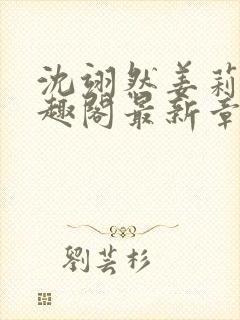 沈翊然姜莉
趣阁最新章
劉芸杉